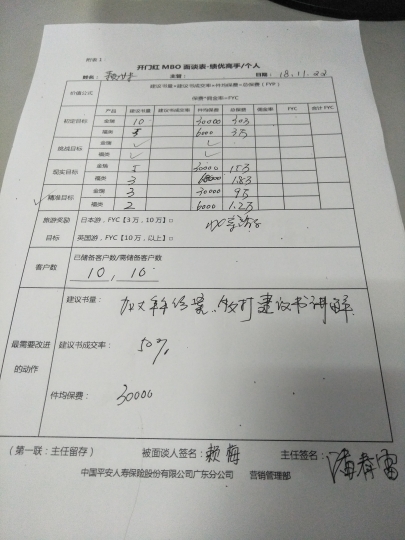 附表1
开门红MBO面谈表-绩优高手/个人
姓名： 主管： 日期：18.11.22
价值公式 建议书量×建议书成交率×件均保费=总保费（FYP）
保费*佣金率=FYC
产品 建议书量 建议书成交率 件均保费 总保费 佣金率 FYC 合计FYC
初定目标 金瑞 10 30000 30万
福类 5 6000 3万
挑战目标 金瑞 ✓ ✓
福类 ✓ ✓
现实目标 金瑞 5 30000 15万
福类 3 6000 1.8万
✓ 精准目标 金瑞 3 30000 9万
福类 2 6000 1.2万
旅游奖励 日本游，FYC【3万，10万】□
目标 英国游，FYC【10万，以上】□
客户数 已储备客户数/需储备客户数
10，10
建议书量： 加大 打建议书讲解
最需要改进的动作 建议书成交率： 50%
件均保费： 30000
（第一联：主任留存） 被面谈人签名：赖梅 主任签名：潘春雷
中国平安人寿保险股份有限公司广东分公司 营销管理部